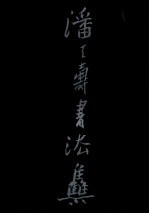 潘天壽書法集